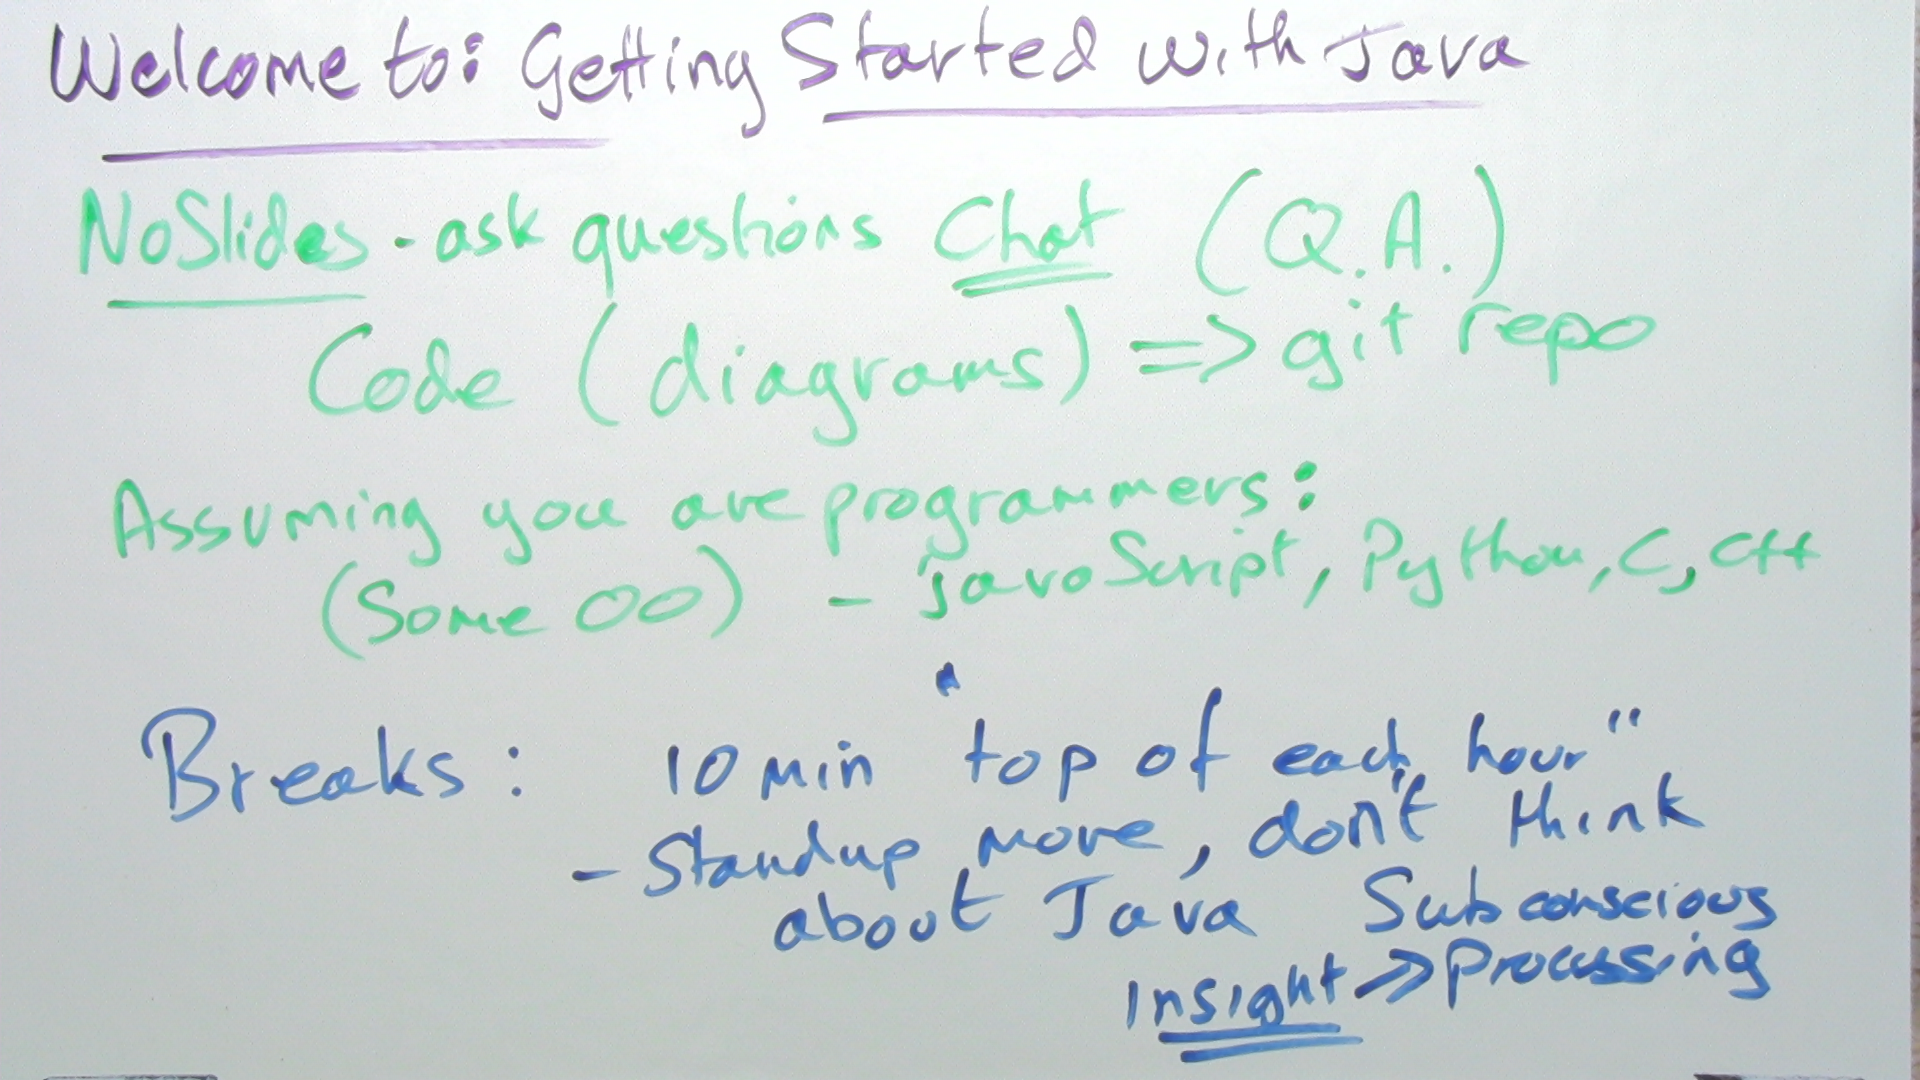 Welcome to: Getting Started with Java
NoSlides - ask questions Chat (Q.A.)
Code (diagrams) => git repo
Assuming you are programmers:
(Some OO) - javaScript, Python, C, C++
Breaks: 10 min "top of each hour"
- Standup, move, don't think
about Java Subconscious
Insight => Processing